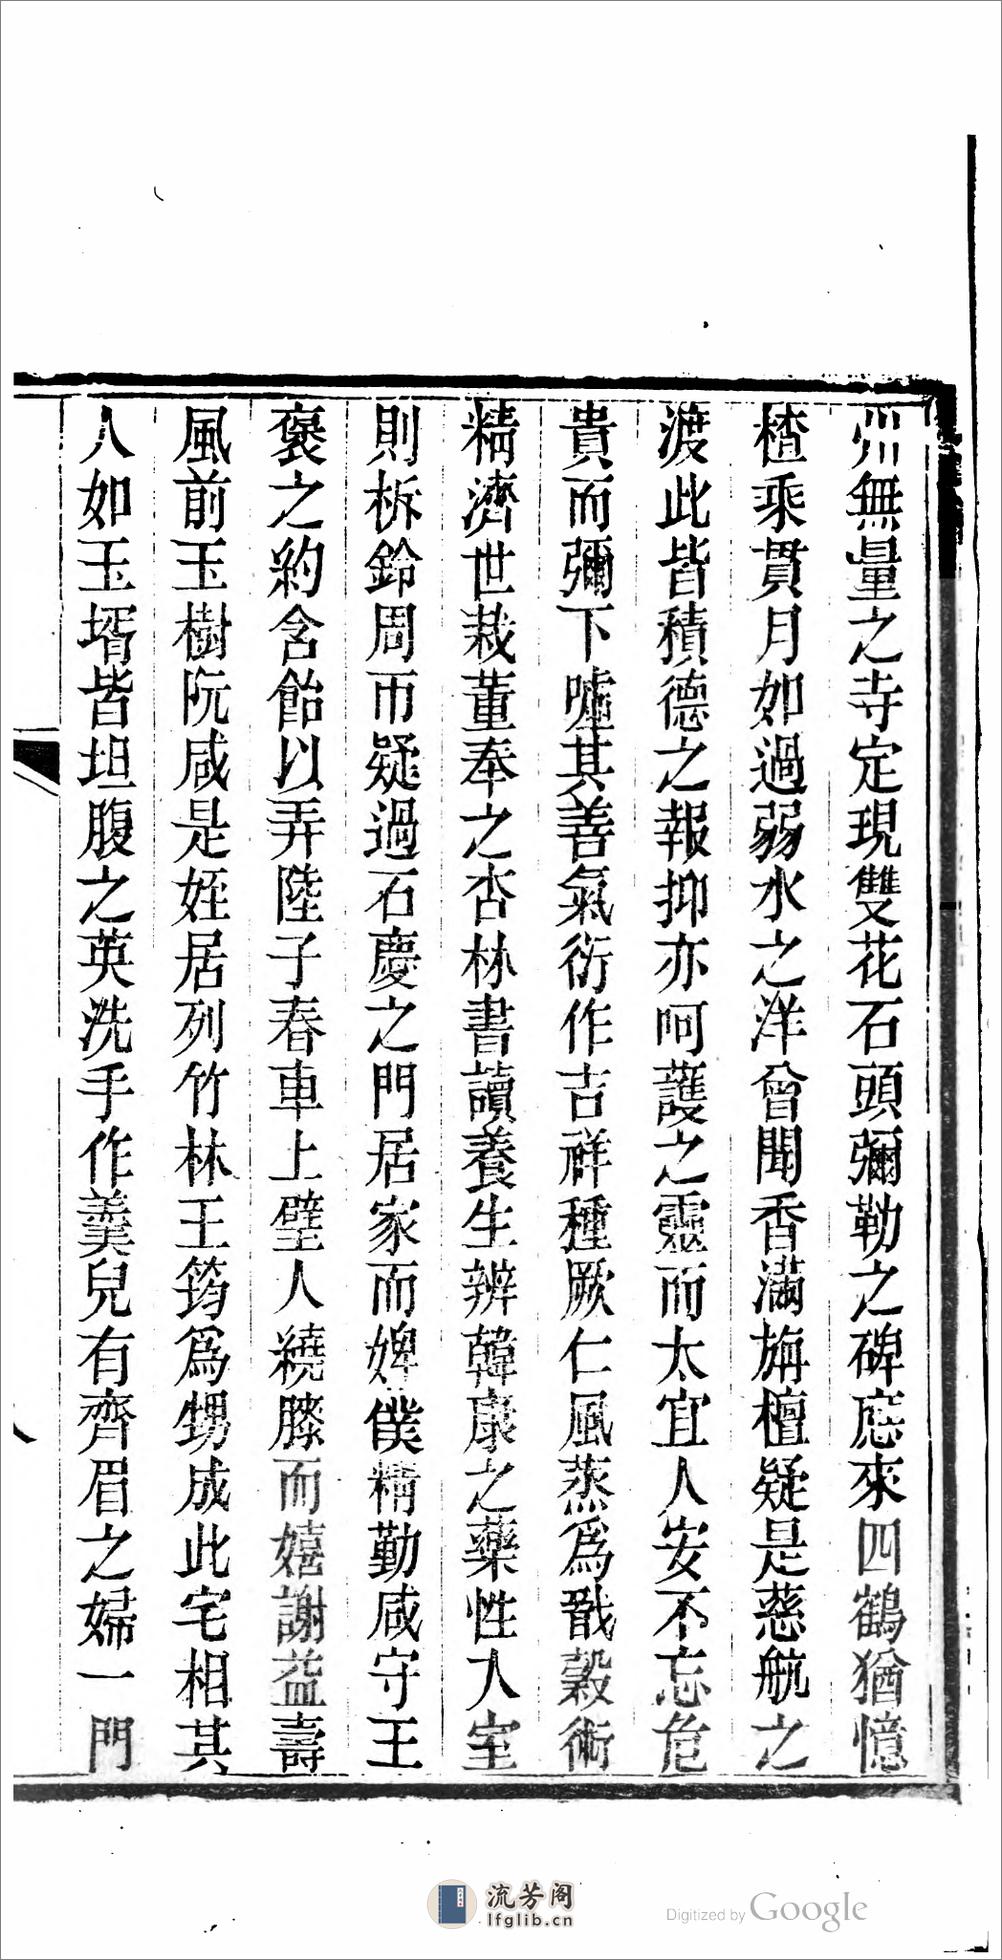 州無量之寺定現雙花石頭彌勒之碑應來四鶴猶憶
楂乘貫月如過弱水之洋曾聞香滿旃檀疑是慈航之
渡此皆積德之報抑亦呵護之靈而太宜人安不忘危
貴而彌下噓其善氣衍作吉祥種厥仁風蒸為戩穀術
精濟世栽董奉之杏林書讀養生辨韓康之藥性入室
則柝鈴周帀疑過石慶之門居家而婢僕精勤咸守王
褒之約含飴以弄陸子春車上璧人繞膝而嬉謝益壽
風前玉樹阮咸是姪居列竹林王筠為甥成此宅相其
人如玉壻皆坦腹之英洗手作羹兒有齊眉之婦一門
流芳阁
lfglib.cn
Digitized by Google